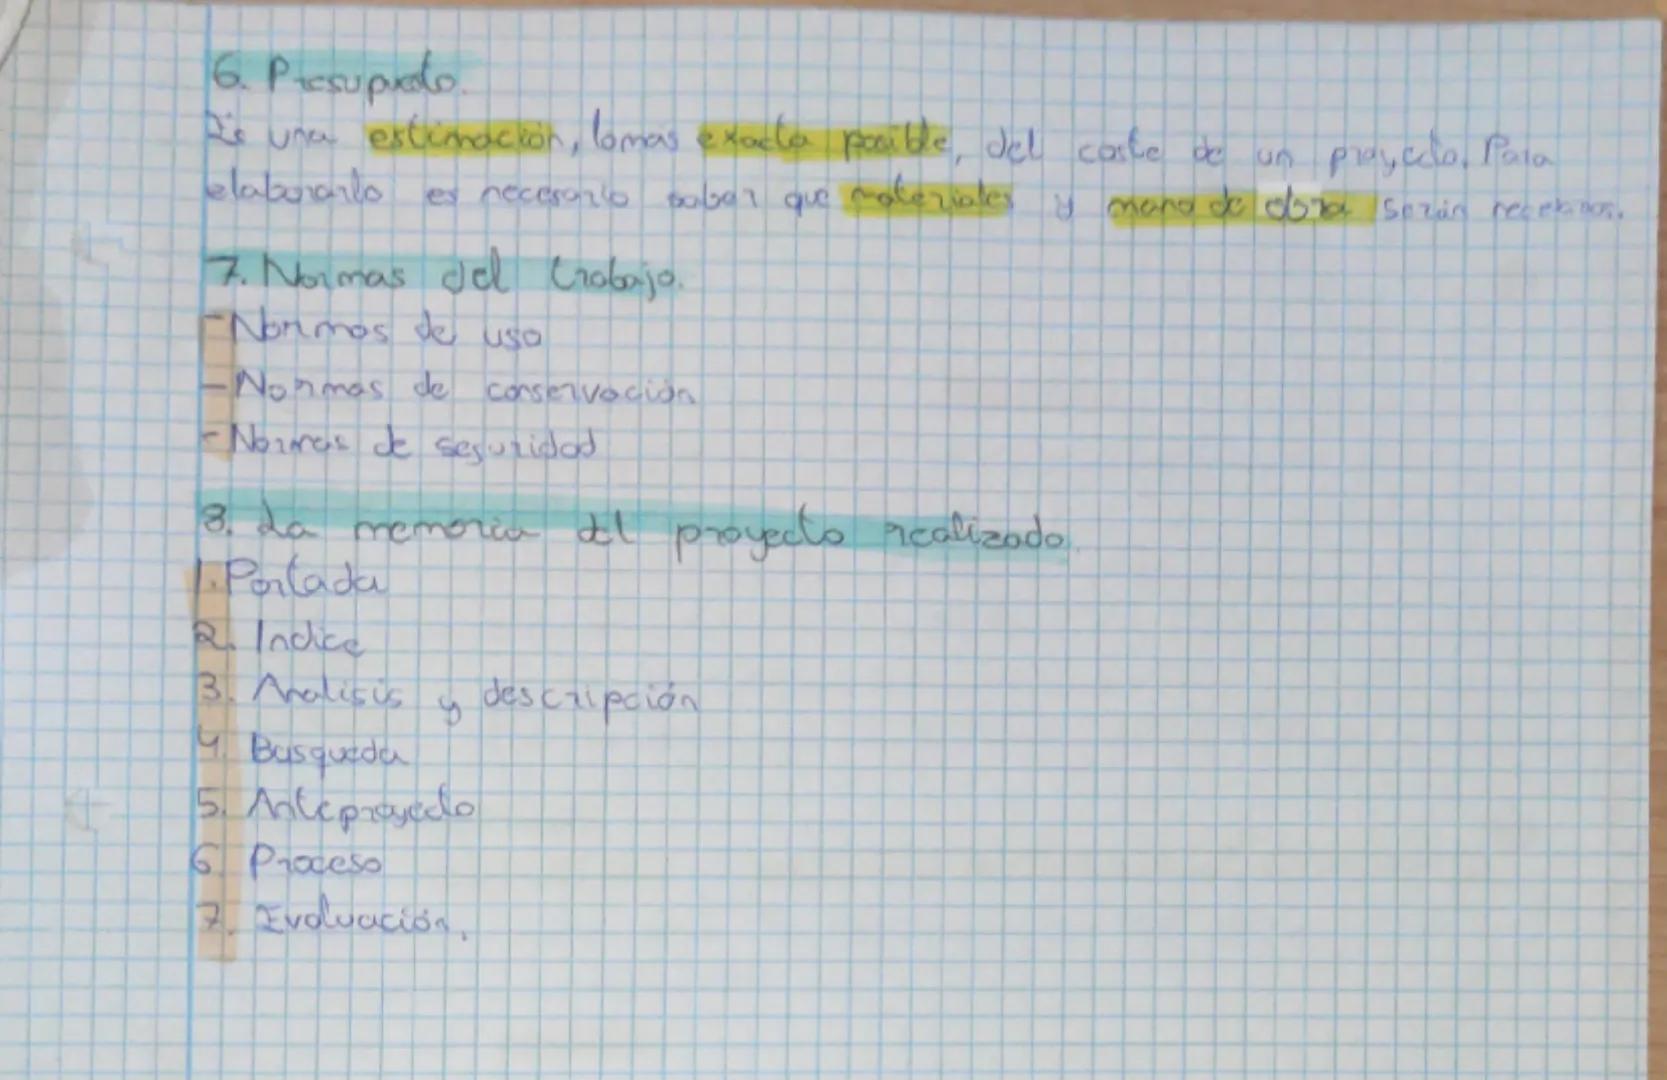 6. Presupuesto.
Es una estimación, lo mas exacta posible, del coste de un proyecto. Para
elaborarlo es necesario saber que materiales y mano de obra serán necesarios.
7. Normas del trabajo.
-Normas de uso
-Normas de conservación
-Normas de seguridad
8. La memoria del proyecto realizado.
1. Portada
2. Indice
3. Analisis y descripción
4. Busqueda
5. Anteproyecto
6 Proceso
7. Evaluación.